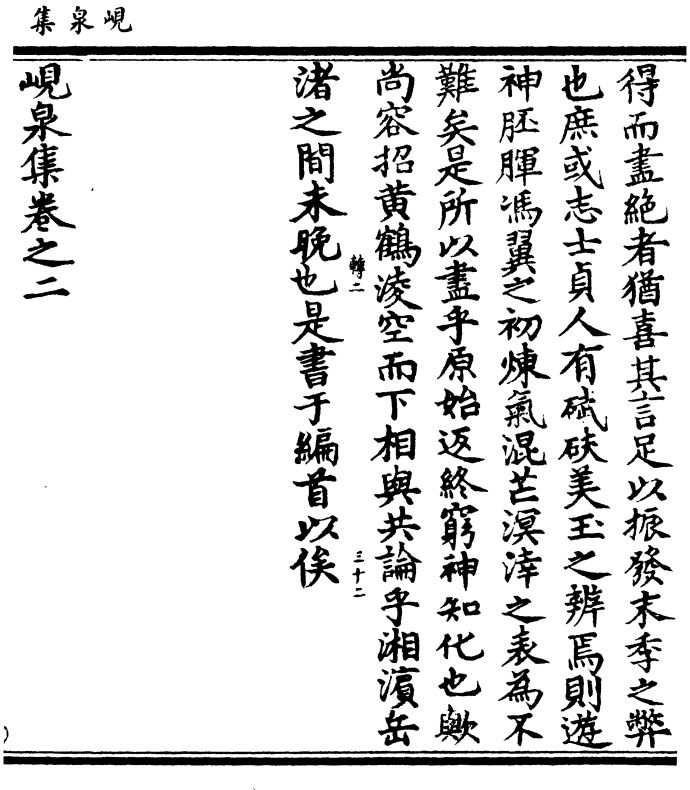 峴泉集
得而盡絕者猶喜其言足以振發末季之弊
也庶或志士貞人有碔砆美玉之辨焉則遊
神胚腪馮翼之初煉氣混芒溟涬之表為不
難矣是所以盡乎原始返終窮神知化也歟
尚容招黄鶴淩空而下相與共論乎湘濵岳
渚之間未晚也是書于編首以俟
轉二
三十二
峴泉集卷之二